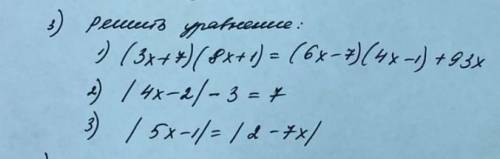 3) Решить уравнение:
1) (3x+7)(8x+1) = (6x-7)(4x-1) + 93x
2) |4x-2| - 3 = 7
3) |5x-1| = |2-7x|